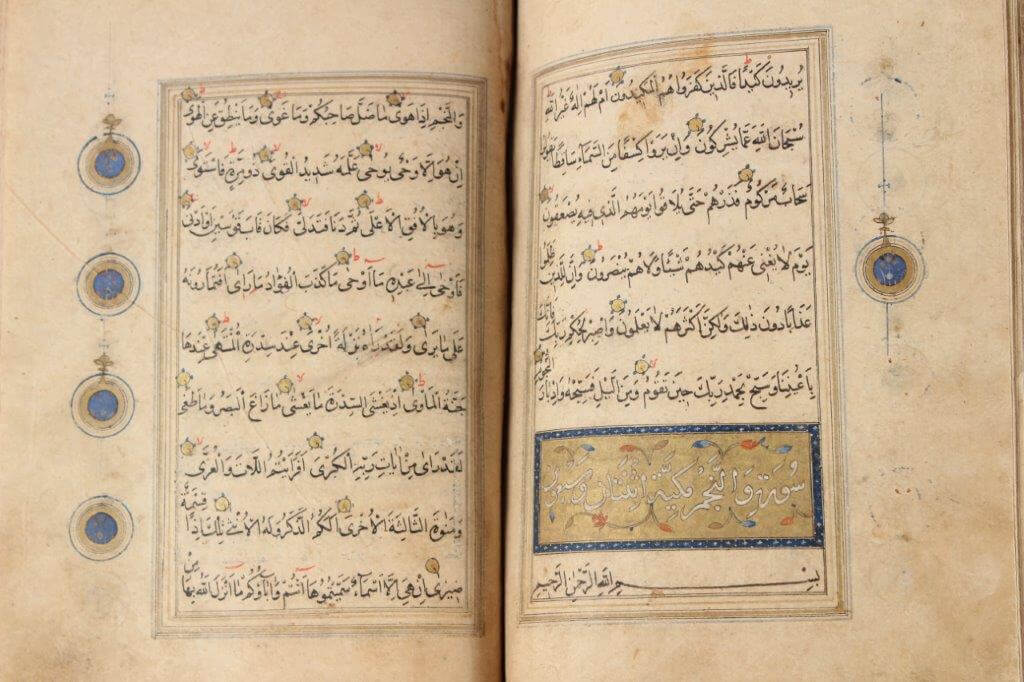 يُرِيدُونَ كَيْدًا فَالَّذِينَ كَفَرُوا هُمُ الْمَكِيدُونَ اَمْ لَهُمْ اِلٰهٌ غَيْرُ اللّٰهِ
سُبْحَانَ اللّٰهِ عَمَّا يُشْرِكُونَ وَاِنْ يَرَوْا كِسْفًا مِنَ السَّمَاءِ سَاقِطًا يَقُولُوا
سَحَابٌ مَرْكُومٌ فَذَرْهُمْ حَتّٰى يُلَاقُوا يَوْمَهُمُ الَّذِي فِيهِ يُصْعَقُونَ
يَوْمَ لَا يُغْنِي عَنْهُمْ كَيْدُهُمْ شَيْئًا وَلَا هُمْ يُنْصَرُونَ وَاِنَّ لِلَّذِينَ ظَلَمُوا
عَذَابًا دُونَ ذٰلِكَ وَلٰكِنَّ اَكْثَرَهُمْ لَا يَعْلَمُونَ وَاصْبِرْ لِحُكْمِ رَبِّكَ فَاِنَّكَ
بِاَعْيُنِنَا وَسَبِّحْ بِحَمْدِ رَبِّكَ حِينَ تَقُومُ وَمِنَ الَّيْلِ فَسَبِّحْهُ وَاِدْبَارَ النُّجُومِ
سُورَةُ وَالنَّجْمِ مَكِّيَّةٌ اِثْنَتَانِ وَسِتُّونَ
بِسْمِ اللّٰهِ الرَّحْمٰنِ الرَّحِيمِ
وَالنَّجْمِ اِذَا هَوٰى مَا ضَلَّ صَاحِبُكُمْ وَمَا غَوٰى وَمَا يَنْطِقُ عَنِ الْهَوٰى
اِنْ هُوَ اِلَّا وَحْيٌ يُوحٰى عَلَّمَهُ شَدِيدُ الْقُوٰى ذُو مِرَّةٍ فَاسْتَوٰى
وَهُوَ بِالْاُفُقِ الْاَعْلٰى ثُمَّ دَنَا فَتَدَلّٰى فَكَانَ قَابَ قَوْسَيْنِ اَوْ اَدْنٰى
فَاَوْحٰى اِلٰى عَبْدِهِ مَا اَوْحٰى مَا كَذَبَ الْفُؤَادُ مَا رَاٰى اَفَتُمَارُونَهُ
عَلٰى مَا يَرٰى وَلَقَدْ رَاٰهُ نَزْلَةً اُخْرٰى عِنْدَ سِدْرَةِ الْمُنْتَهٰى عِنْدَهَا
جَنَّةُ الْمَاْوٰى اِذْ يَغْشَى السِّدْرَةَ مَا يَغْشٰى مَا زَاغَ الْبَصَرُ وَمَا طَغٰى
لَقَدْ رَاٰى مِنْ اٰيَاتِ رَبِّهِ الْكُبْرٰى اَفَرَاَيْتُمُ اللَّاتَ وَالْعُزّٰى
وَمَنٰوةَ الثَّالِثَةَ الْاُخْرٰى اَلَكُمُ الذَّكَرُ وَلَهُ الْاُنْثٰى تِلْكَ اِذًا قِسْمَةٌ
ضِيزٰى اِنْ هِيَ اِلَّا اَسْمَاءٌ سَمَّيْتُمُوهَا اَنْتُمْ وَاٰبَاؤُكُمْ مَا اَنْزَلَ اللّٰهُ بِهَا مِنْ